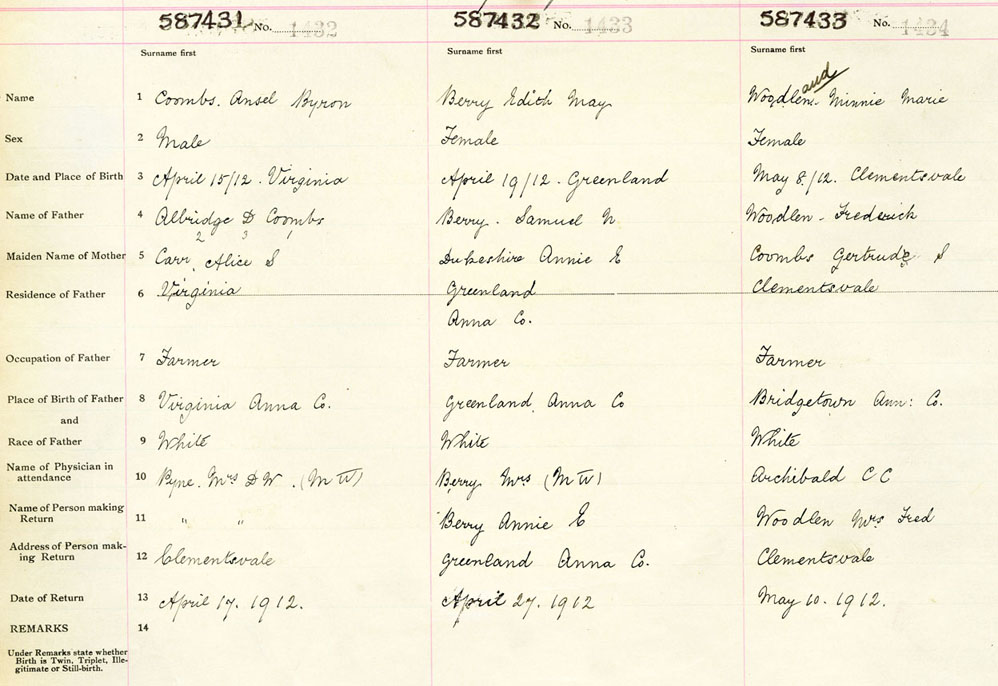 587431 No. 1432 587432 No. 1433 587433 No. 1434
Surname first Surname first Surname first
and
Name 1 Coombs. Ansel Byron Berry Edith May Woodlen. Minnie Marie
Sex 2 Male Female Female
Date and Place of Birth 3 April 15/12. Virginia April 19/12. Greenland May 8/12. Clementsvale
Name of Father 4 Albridge D Coombs Berry. Samuel N Woodlen. Frederick
2 3 1
Maiden Name of Mother 5 Carr, Alice S Dukeshire Annie E Coombs Gertrude S
Residence of Father 6 Virginia Greenland Clementsvale
Anna Co.
Occupation of Father 7 Farmer Farmer Farmer
Place of Birth of Father 8 Virginia Anna Co. Greenland Anna Co Bridgetown Ann: Co.
and
Race of Father 9 White White White
Name of Physician in
attendance 10 Pyne. Mrs D W. (M W) Berry Mrs (M W) Archibald C C
Name of Person making
Return 11 " " Berry Annie E Woodlen Mrs Fred
Address of Person mak-
ing Return 12 Clementsvale Greenland Anna Co. Clementsvale
Date of Return 13 April 17. 1912. April 27. 1912 May 10. 1912.
REMARKS 14
Under Remarks state whether
Birth is Twin, Triplet, Ille-
gitimate or Still-birth.